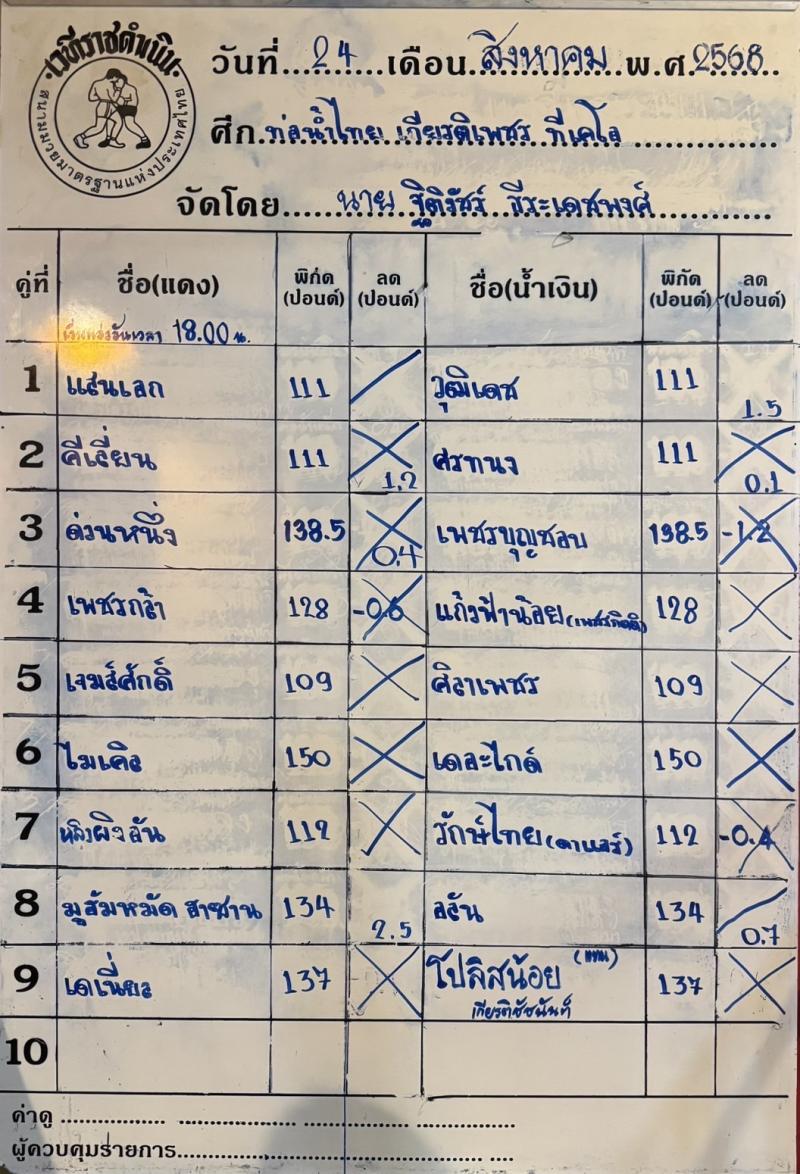 เวทีราชดำเนิน
สนามมวยมาตรฐานแห่งประเทศไทย
วันที่....24....เดือน.สิงหาคม.พ.ศ.2568..
ศึก.ท่อน้ำไทย เกียรติเพชร ทีเคโอ...............
จัดโดย......นาย ฐิติรัชร์ ธีระเดชพงศ์............
คู่ที่ ชื่อ(แดง) พิกัด (ปอนด์) ลด (ปอนด์) ชื่อ(น้ำเงิน) พิกัด (ปอนด์) ลด (ปอนด์)
เวลา 18.00 น.
1 แสนเลก 111 วุฒิเดช 111 1.5
2 คีเรี่ยน 111 1.2 ศรทนง 111 0.1
3 ด่วนหนึ่ง 138.5 0.4 เพชรบุญชอบ 138.5 -1.2
4 เพชรกล้า 128 -0.6 แก้วฟ้าน้อย (เพชรกิตติ) 128
5 เจมส์ศักดิ์ 109 ศิลาเพชร 109
6 ไมเคิล 150 เดอะไกด์ 150
7 หลิงผิงอัน 112 รักษ์ไทย (ดาบแลร์) 112 -0.4
8 มูฮัมหมัด ฮาซาน 134 2.5 อลัน 134 0.7
9 เดเนี่ยล 137 โปลิสน้อย (แทน) 137
เกียรติชัชนันท์
10
ค่าดู ................ .................. ............... ...............
ผู้ควบคุมรายการ.................................................. ....